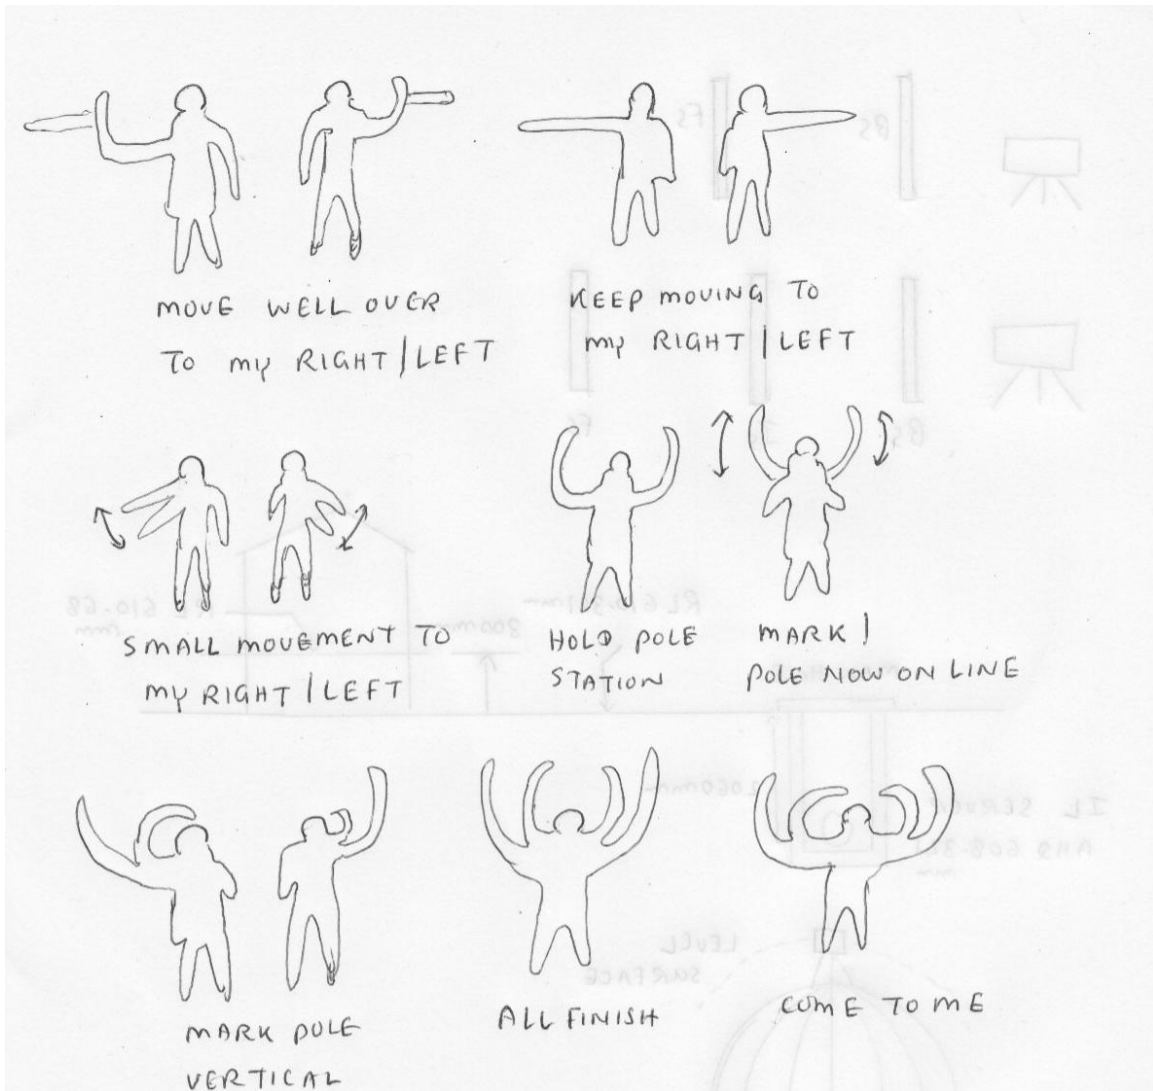 FS
BS
MOVE WELL OVER
TO my RIGHT/LEFT
KEEP MOVING TO
my RIGHT/LEFT
FS
BS
SMALL MOVEMENT TO
my RIGHT/LEFT
HOLD POLE
STATION
MARK/
POLE NOW ON LINE
LEVEL
SURFACE
MARK POLE
VERTICAL
ALL FINISH
COME TO ME